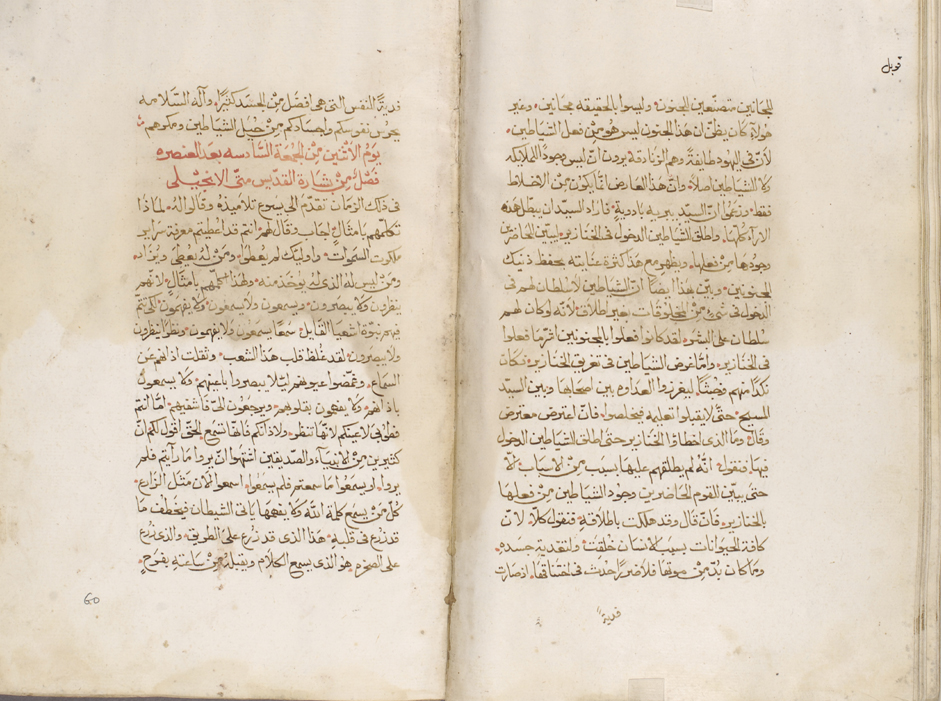 قوبل
المجانين متصنعين الجنون وليسوا بالحقيقه مجانين. وغير
هولاء كان يظن ان هذا الجنون ليس هو من فعل الشياطين.
لان في اليهود طايفة وهم الزنادقه يرون ان ليس وجود للملايكه
ولا الشياطين اصلا. وان هذا العارض انما يكون من الاخلاط
فقط. وزعموا ان السيد يبريه بادوية. فاراد السيد ان يبطل هذه
الارآ كلها. واطلق الشياطين الدخول في الخنازير. ليبين الحاضرين
وجودها من فعلها. ويظهر مع هذا كثرة عنايته بحفظ ذنيك
المجنونين. وبين بهذا ايضا ان الشياطين لا سلطان لهم في
الدخول في شيء من المخلوقات بغير اطلاق. لانه لو كان لهم
سلطان على البشر. لقد كانوا فعلوا بالمجنونين اشر ما فعلوا
في الخنازير. واما غرض الشياطين في تغريق الخنازير. فكان
نكدا منهم وخبثا. ليغرزوا العداوه بين اصحابها وبين السيد
المسيح. حتى لا يقبلوا تعليمه فيخلصوا. فان اعترض معترض
وقال. وما الذي اخطاوا الخنازير حتى اطلق الشياطين الدخول
فيها. فنقول. انه لم يطلقهم عليها بسبب من الاسباب. الا
حتى يبين للقوم الحاضرين وجود الشياطين من فعلها
بالخنازير. فان قال وقد هلكت باطلاقه. فنقول كلا. لان
كافة الحيوانات بسبب الانسان خلقت. ولتغدية جسده.
وما كان بد من موتها. فلا ضررا حدث في اختناقها. اذ صارت
فدية
فدية النفس التي هي افضل من الجسد كثيرا. وآله السلامه
يحرس نفوسكم واجسادكم من حيل الشياطين ومكرهم
يوم الاثنين من الجمعة السادسه بعد العنصره
فصل من بشارة القديس متى الانجيلي
في ذلك الزمان تقدم الى يسوع تلاميذه وقالوا له. لماذا
تكلمهم بامثال. اجاب وقال لهم. انتم قد اعطيتم معرفة سراير
ملكوت السموات. واوليك لم يعطوا. ومن له يعطى ويزاد.
ومن ليس له الذي له يوخذ منه. ولهذا اكلمهم بامثال. لانهم
ينظرون ولا يبصرون. ويسمعون ولا يسمعون. ولا يفهمون. لكي تتم
فيهم نبوة اشعيا القايل. سمعا يسمعون ولا يفهمون. ونظرا ينظرون
ولا يبصرون. لقد غلظ قلب هذا الشعب. وثقلت اذانهم عن
السماع. وغمضوا عيونهم ليلا يبصروا باعينهم. ولا يسمعون
باذانهم. ولا يفهمون بقلوبهم. ويرجعون الي فاشفيهم. اما انتم
فطوبى لاعينكم لانها تنظر. ولاذانكم فانها تسمع. الحق اقول لكم ان
كثيرين من الانبيآء والصديقين اشتهوا ان يروا ما رايتم فلم
يروا. او يسمعوا ما سمعتم فلم يسمعوا. اسمعوا الان مثل الزارع.
كل من يسمع كلمة الله ولا يفهمها ياتي الشيطان فيخطف ما
قد زرع في قلبه. هذا الذي قد زرع على الطريق. والذي زرع
على الصخر. هو الذي يسمع الكلام ويقبله من ساعته بفرح.
60